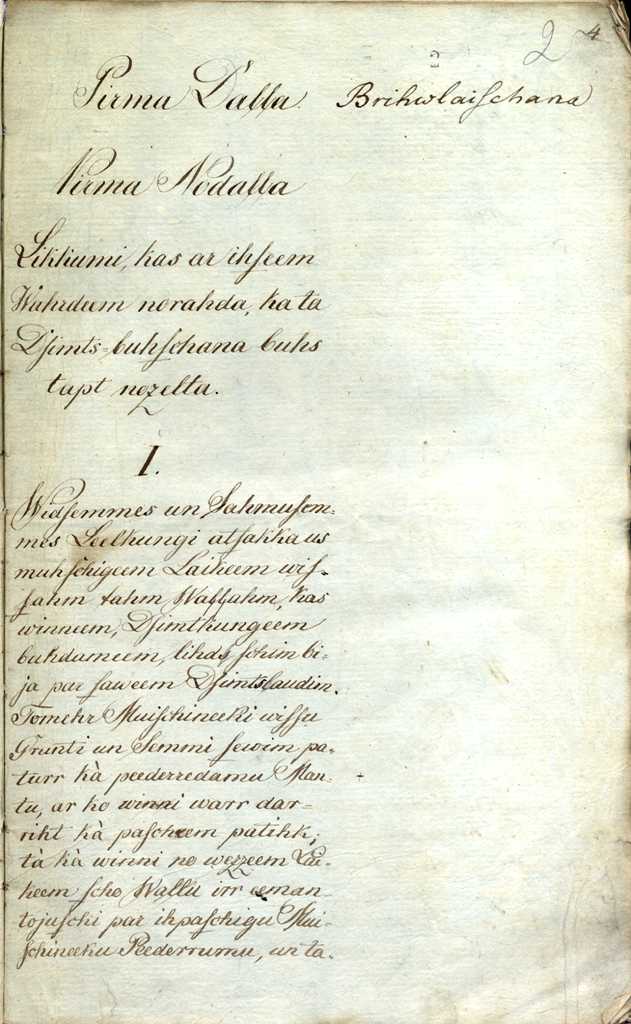 2 4
Pirma Dalla. Brihwlaischana
Pirma Nodalla
Likkumi, kas ar ihseem
Wahrdeem norahda, ka ta
Dsimts-buhschana buhs
tapt nozelta.
I.
Widsemmes un Sahmusem-
mes Leelkungi atsakka us
muhschigeem Laikeem wis-
sahm tahm Wallahm, kas
winneem, Dsimtkungeem
buhdameem, lihds schim bi-
ja par saweem Dsimtslaudim.
Tomehr Muischineeki wissu
Grunti un Semmi sewim pa-
turr kà peederredamu Man-
tu, ar ko winni warr dar-
riht kà pascheem patihk;
tà kà winni no wezzeem Lai-
keem scho Wallu irr eeman-
tojuschi par ihpaschigu Mui-
schineeku Peederrumu, un ta.